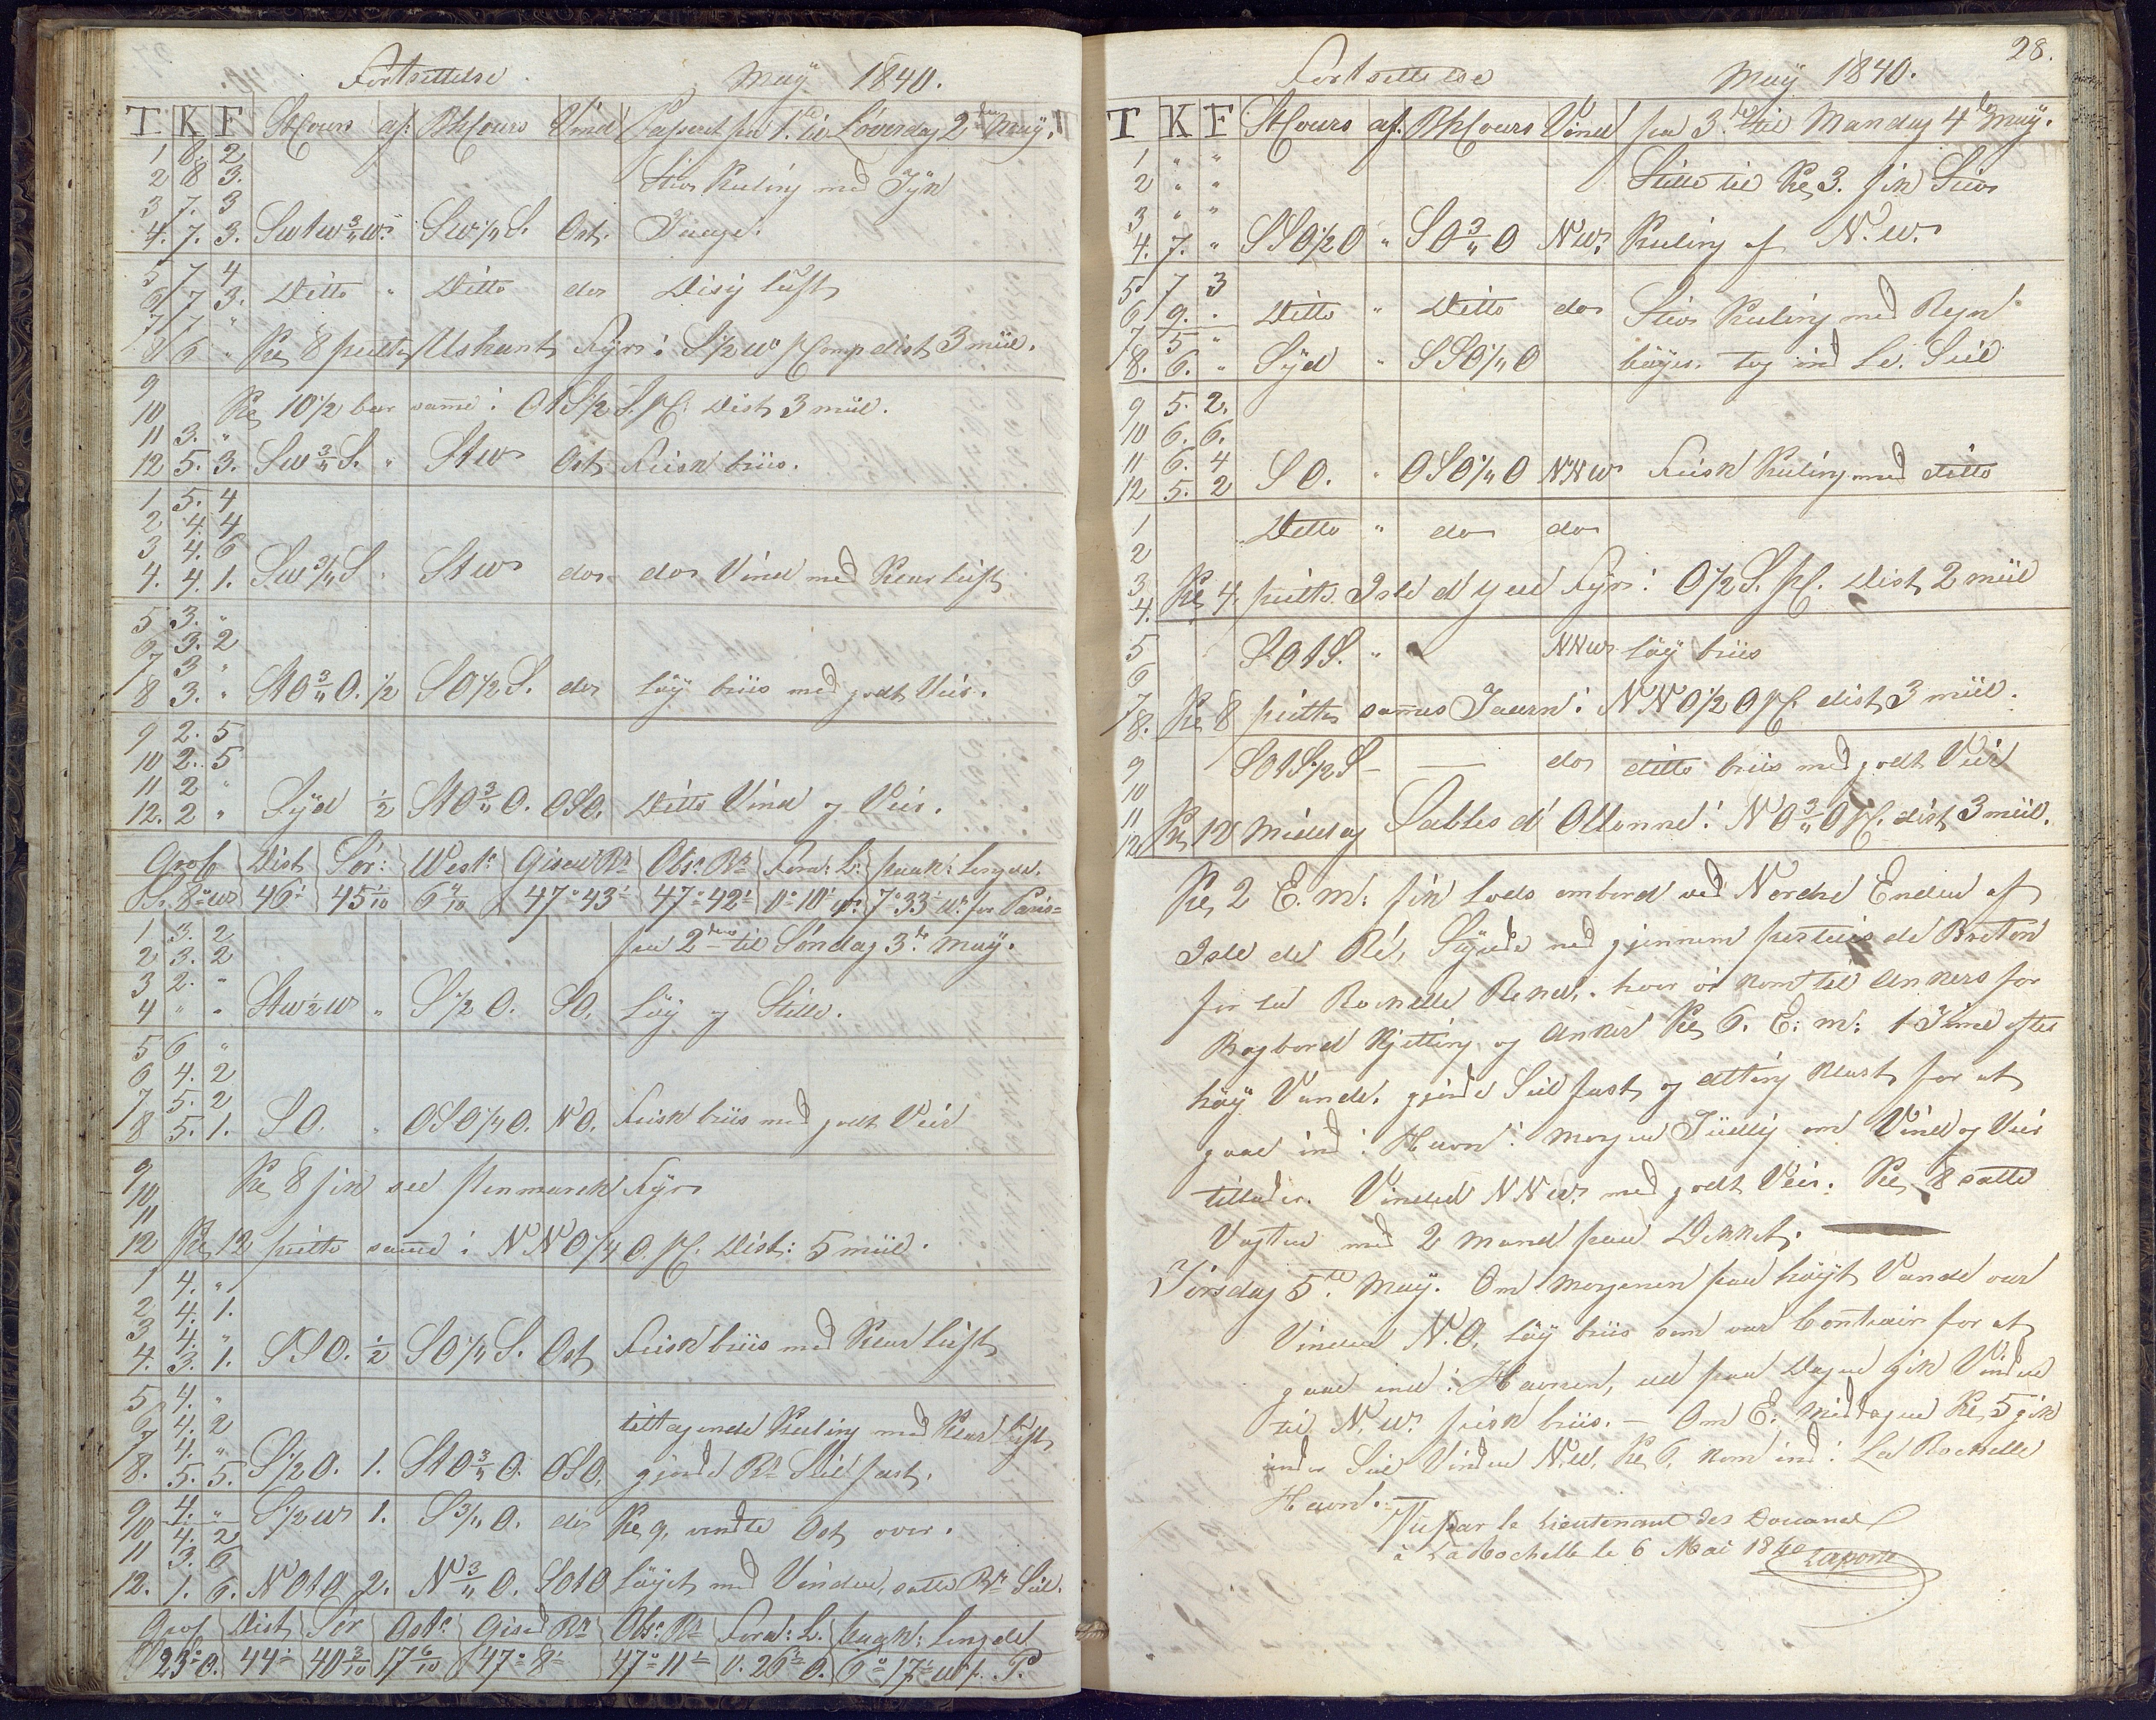 Fortsettelse May 1840.
T. K F StCours af: BhCours Vind Passeret fra 1.te til Löverdag 2den May.
1 8. 2
2 8 3. Stiv Kuling med Tyk
3 7. 3
4. 7. 3. SwtW 3/4 W. SW 1/4 S. Ost.
5 7 4
6 7 3. Ditto " Ditto do Disig luft
7 7 "
8 6 " Kl 8 peilte Ushant Fyr i S 1/2 W pr Comp dist 3 miil.
9
10 Kl 10 1/2 bar samme i OtS 1/2 S. p C. Dist 3 miil.
11 3. "
12 5. 3. SW 3/4 S. " StW Ost Frisk briis.
1 5. 4
2 4. 4
3 4. 6
4. 4. 1. SW 3/4 S " StW do do Vind med Klar luft
5 3. "
6 3. 2
7 3 "
8 3. " StO 3/4 O. 1/2 SO 1/2 S. do löy briis med godt Veir.
9 2. 5
10 2. 5
11 2 "
12. 2 " Syd 1/2 StO 3/4 O. OSO. Ditto Vind og Veir.
Grof Dist Sör: West: Gised Br Obsr. Br Fora: L: paak: Lengde.
S. 8° W 46' 45 1/10 6 4/10 47° 43' 47° 42' 0° 10' W. 7° 33' W. for Paris
1 3. 2 fra 2den til Söndag 3de May.
2 3. 2
3 2. "
4 " " StW 1/2 W " S 1/2 O. SO. Löy og Stille.
5 6 "
6 4. 2
7 5. 2
8 5. 1. SO. " OSO 1/4 O. NO. Frisk briis med godt Veir
9
10 Kl 8 fik see Penmarck Fyr
11
12 Kl 12 peilte samme i NNO 1/4 O. p C. Dist: 5 miil.
1 4. "
2 4. 1.
3 4. "
4. 3. 1. SSO. 1/2 SO 1/4 S. Ost Frisk briis med Klar luft
5 4. "
6 4. 2 tiltagende Kuling med Klar luft
7 4. "
8. 5. 5. S 1/2 O. 1. StO 3/4 O. OSO. gjorde Br Seil fast.
9 4. " S 1/2 W 1. S 3/4 O. do Kl 9, vendte Ost over.
10 4. 2
11 3. 6
12. 1. 6. NOtO 2. N 3/4 O. SOtO Löyet med Vinden, satte Br Seil.
Grof Dist Sör Ost: Gised Br Obsr. Br Ford: L. paak: Lengde
S 23° O. 44' 40 3/10 17 6/10 47° 8' 47° 11' 0. 26' O. 6° 17' W f. P.
28.
Fortsettelse May 1840.
T K F StCours af. BhCours Vind fra 3de til Mandag 4de May.
1 " "
2 " " Stille til Kl 3. fik Stiv
3 " "
4. 7. " SSO 1/2 O " SO 3/4 O NW. Kuling af N.W.
5 7 3
6 9. " Ditto " Ditto do Stiv Kuling med Regn
7 5 "
8. 6. " Syd " SSO 1/4 O byger. tog ind Le. Seil
9 5. 2.
10 6. 6.
11 6. 4
12 5. 2 SO. " OSO 1/4 O NNW Frisk Kuling med ditto
1 Ditto " do do
2
3
4. Kl 4. peilte Isle d'yeu Fyr i O 1/2 S. p C. Dist 2 miil
5 SOtS. " NNW löy briis
6
7
8. Kl 8 peilte samme Taarn i NNO 1/2 O p C. dist 3 miil.
9 SOtS 1/2 S — — do ditto briis med godt Veir
10
11
12 Kl 12 Middag Sables d'Ollonne i NO 3/4 O p C. dist 3 miil.
Kl 2 E.m: fik Lods ombord ved Nordre Enden af
Isle de Ré, Styrede ned gjennem pertuis de Breton
for La Rochelle Rehed, hvor vi kom til Ankers for
Bagbord Kjetting og Anker Kl 6. E:m: 1 Time efter
höy Vande. gjorde Seil fast og alting klart for at
gaae ind i Havn i morgen Tiidlig om Vind og Veir
tillader. Vinden NNW. med godt Veir. Kl. 8 satte
Vagten med 2 Mand paa Dekket.
Tirsdag 5te May. Om Morgenen paa höyt Vande var
Vinden N.O. löy briis som var Contrair for at
gaae ind i Havnen, ud paa Dagen gik Vinden
til N.W. frisk briis. — Om E. Middagen Kl 5 gik
under Seil Vinden N.W. Kl 6. kom ind i La Rochelle
Havn.
Vu par le Lieutenant des Douanes
à La Rochelle le 6 Mai 1840
Laporte